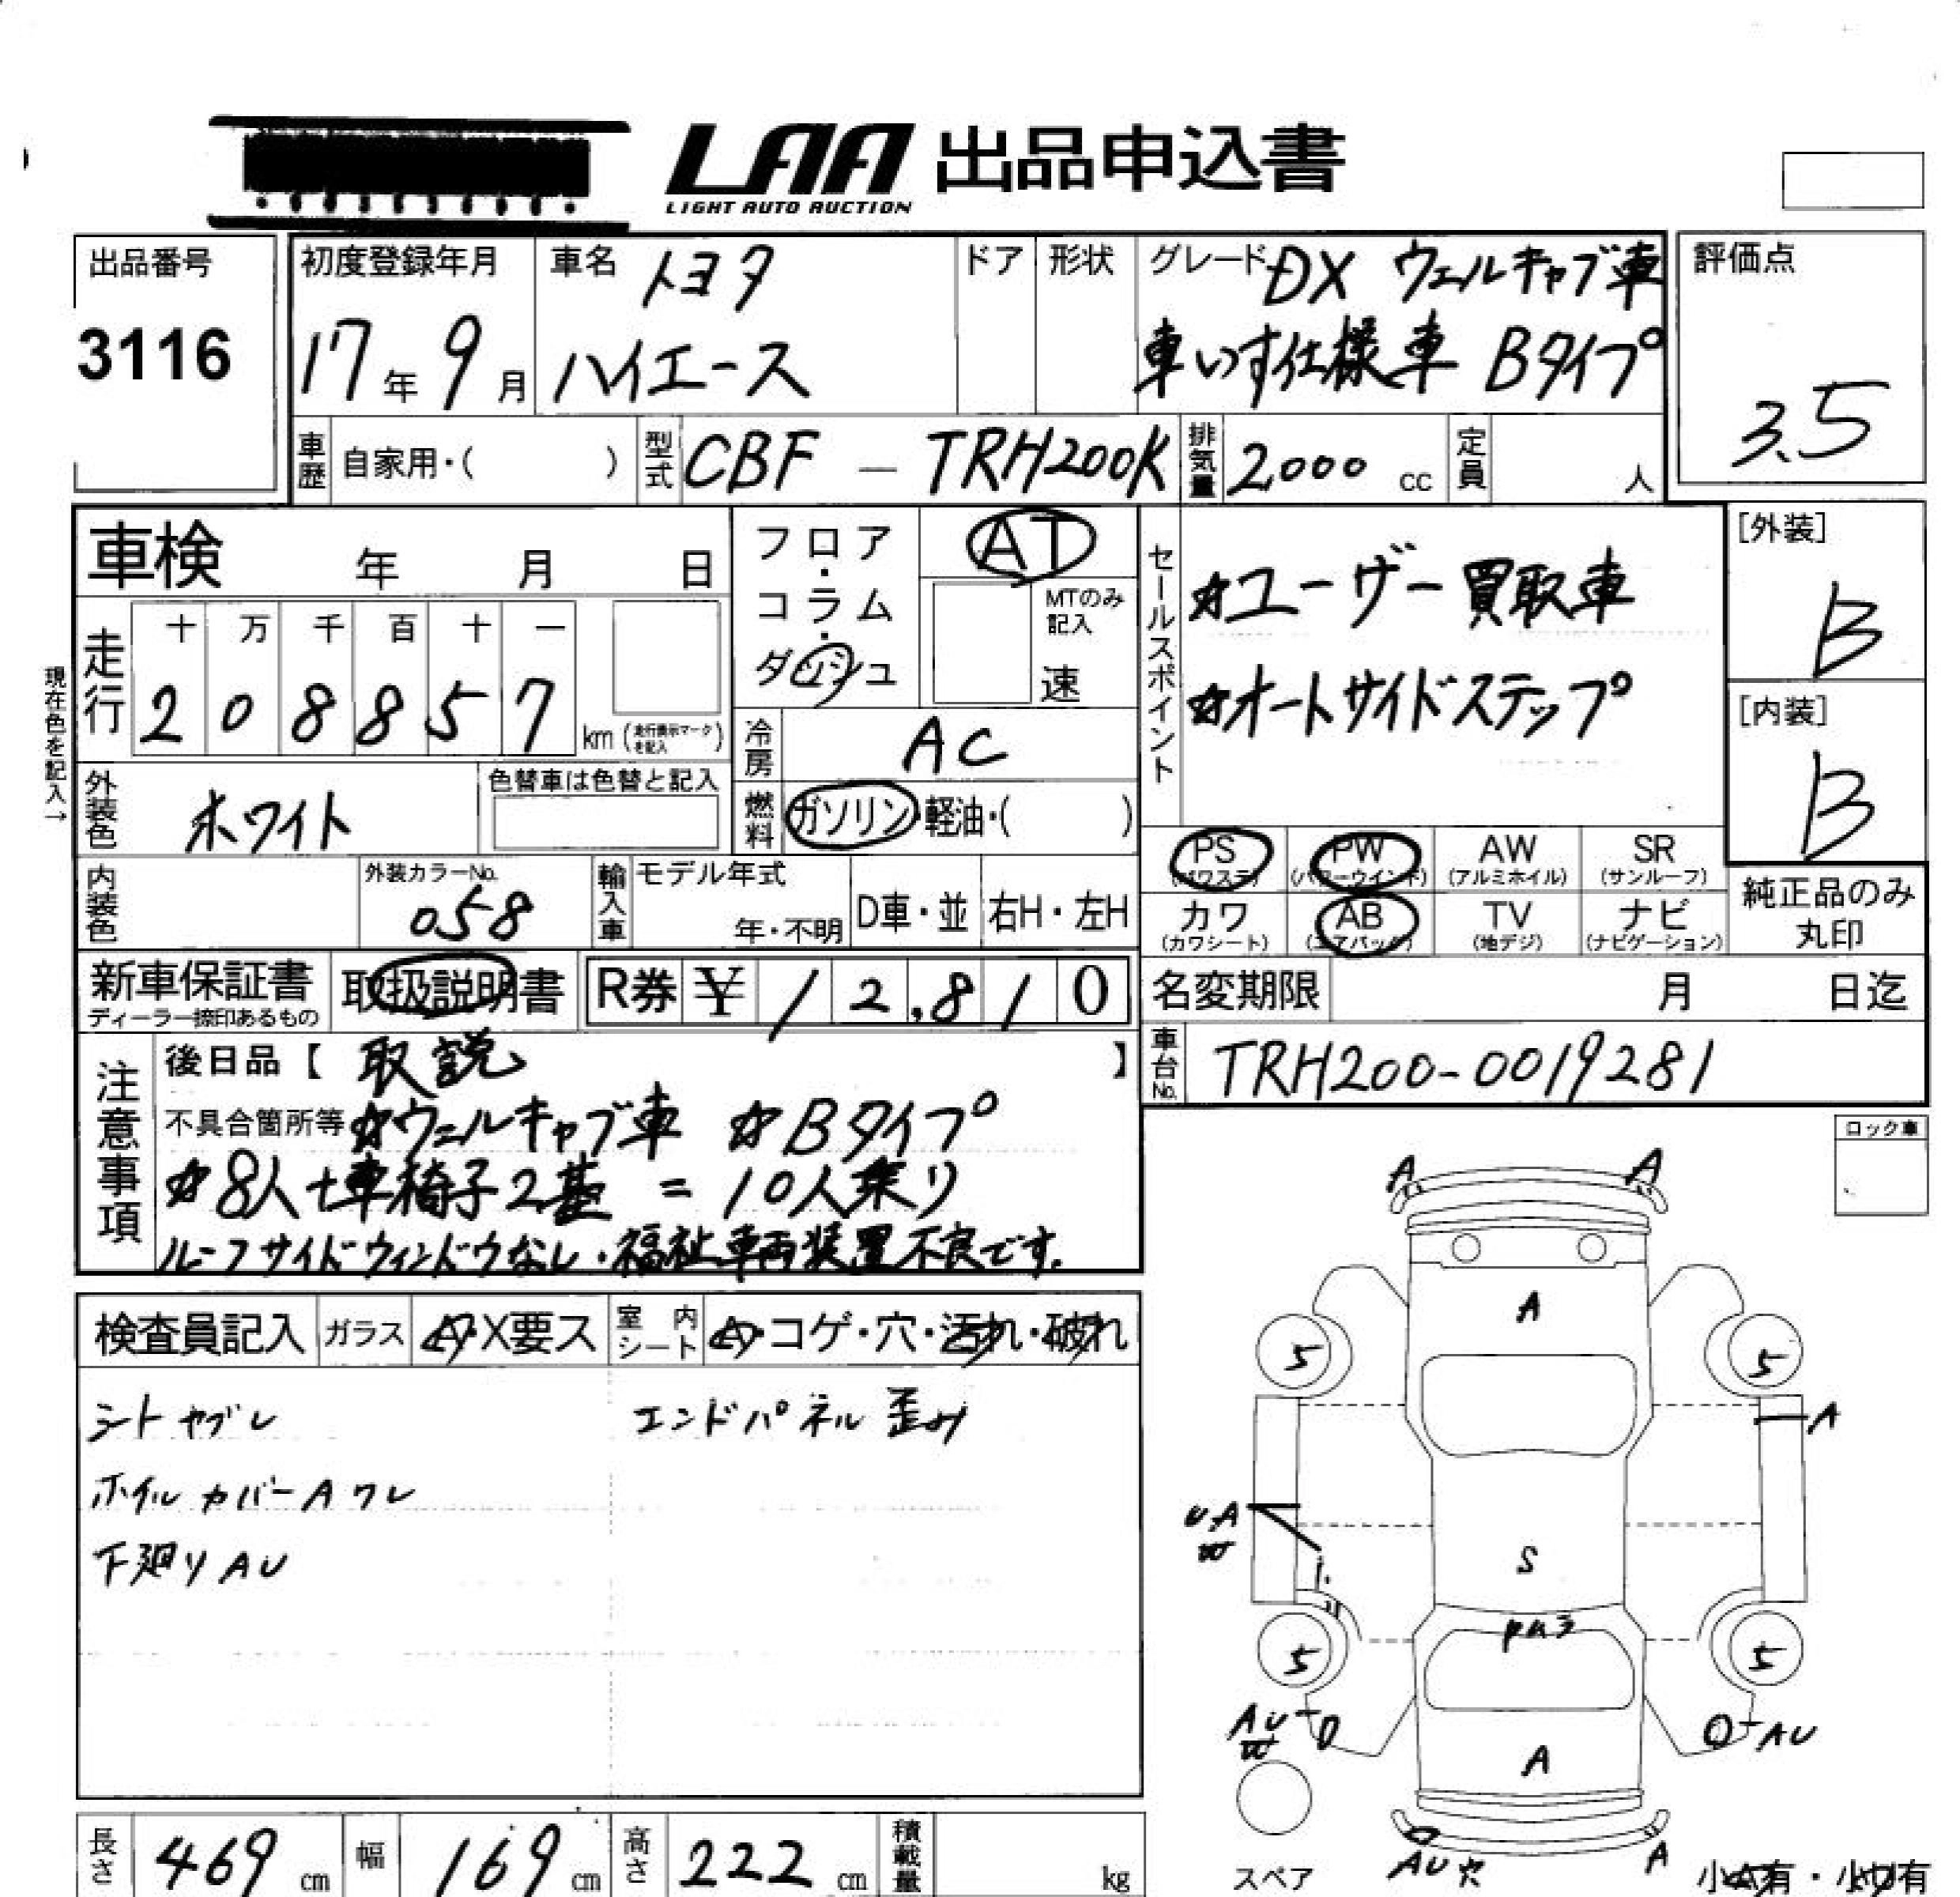 LAA 出品申込書
LIGHT AUTO AUCTION
出品番号
3116
初度登録年月
17年 9月
車名 トヨタ
ハイエース
ドア
形状
グレード DX ウェルキャブ車
車いす仕様車 Bタイプ
評価点
3.5
車歴 自家用・( )
型式 CBF － TRH200K
排気量 2,000 cc
定員 人
車検 年 月 日
フロア・コラム・ダッシュ
AT
MTのみ記入
速
セールスポイント
☆ユーザー買取車
☆オートサイドステップ
[外装]
B
[内装]
B
現在色を記入→
走行
十 万 千 百 十 一
2 0 8 8 5 7 km (走行表示マークを記入)
冷房 AC
外装色 ホワイト
色替車は色替と記入
燃料 ガソリン・軽油・( )
PS (パワステ)
PW (パワーウインド)
AW (アルミホイル)
SR (サンルーフ)
カワ (カワシート)
AB (エアバック)
TV (地デジ)
ナビ (ナビゲーション)
純正品のみ
丸印
内装色
外装カラーNo.
058
輸入車
モデル年式
年・不明
D車・並
右H・左H
新車保証書
ディーラー捺印あるもの
取扱説明書
R券 ¥ 12,810
名変期限 月 日迄
車台No. TRH200-0019281
注意事項
後日品【 取説 】
不具合箇所等 ☆ウェルキャブ車 ☆Bタイプ
☆8人+車椅子2基 = 10人乗り
ルーフサイドウィンドウなし・福祉車両装置不良です。
ロック車
検査員記入
ガラス A・X要ス
室内シート A・コゲ・穴・汚れ・破れ
シート ヤブレ
エンドパネル 歪み
ホイルカバー A ワレ
下廻り AU
A A
A
5 5
A
UA
W
S
5 5
AU
W
AU
A
スペア
AU
A
小A有・小U有
長さ 469 cm
幅 169 cm
高さ 222 cm
積載量 kg